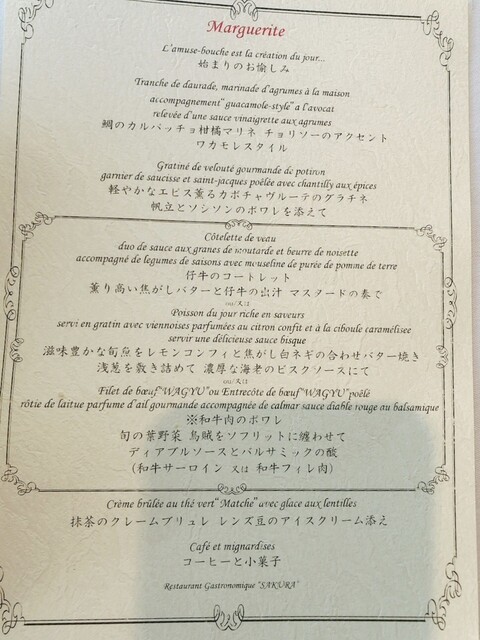 Marguerite
L'amuse-bouche est la création du jour...
始まりのお愉しみ
Tranche de daurade, marinade d'agrumes à la maison
accompagnement" guacamole-style" a l'avocat
relevée d'une sauce vinaigrette aux agrumes
鯛のカルパッチョ柑橘マリネ チョリソーのアクセント
ワカモレスタイル
Gratiné de velouté gourmande de potiron
garnier de saucisse et saint-jacques poêlée avec chantilly aux épices
軽やかなエピス薫るカボチャヴルーテのグラチネ
帆立とソシソンのポワレを添えて
Côtelette de veau
duo de sauce aux granes de moutarde et beurre de noisette
accompagné de legumes de saisons avec mouseline de purée de pomme de terre
仔牛のコートレット
薫り高い焦がしバターと仔牛の出汁 マスタードの奏で
ou/又は
Poisson du jour riche en saveurs
servi en gratin avec viennoises parfumées au citron confit et à la ciboule caramélisée
servir une délicieuse sauce bisque
滋味豊かな旬魚をレモンコンフィと焦がし白ネギの合わせバター焼き
浅葱を敷き詰めて 濃厚な海老のビスクソースにて
ou/又は
Filet de bœuf"WAGYU"ou Entrecôte de bœuf"WAGYU"poêlè
rôtie de laitue parfume d'ail gourmande accompagnée de calmar sauce diable rouge au balsamique
※和牛肉のポワレ
旬の葉野菜 烏賊をソフリットに纏わせて
ディアブルソースとバルサミックの酸
(和牛サーロイン 又は 和牛フィレ肉)
Crème brûlée au thé vert" Matche" avec glace aux lentilles
抹茶のクレームブリュレ レンズ豆のアイスクリーム添え
Café et mignardises
コーヒーと小菓子
Restaurant Gastronomique "SAKURA"